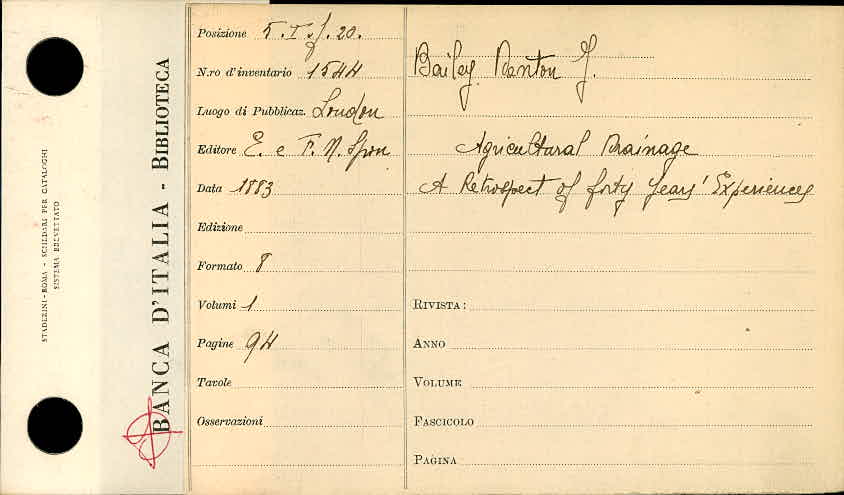 STADERINI - ROMA - SCHEDARI PER CATALOGHI
SISTEMA BREVETTATO
BANCA D'ITALIA - BIBLIOTECA
Posizione 5.I.f.20.
N.ro d'inventario 1544
Luogo di Pubblicaz. London
Editore E. e F. N. Spon
Data 1883
Edizione
Formato 8
Volumi 1
Pagine 94
Tavole
Osservazioni
Bailey Denton J.
Agricultural Drainage
A Retrospect of forty years' Experiences
RIVISTA:
ANNO
VOLUME
FASCICOLO
PAGINA